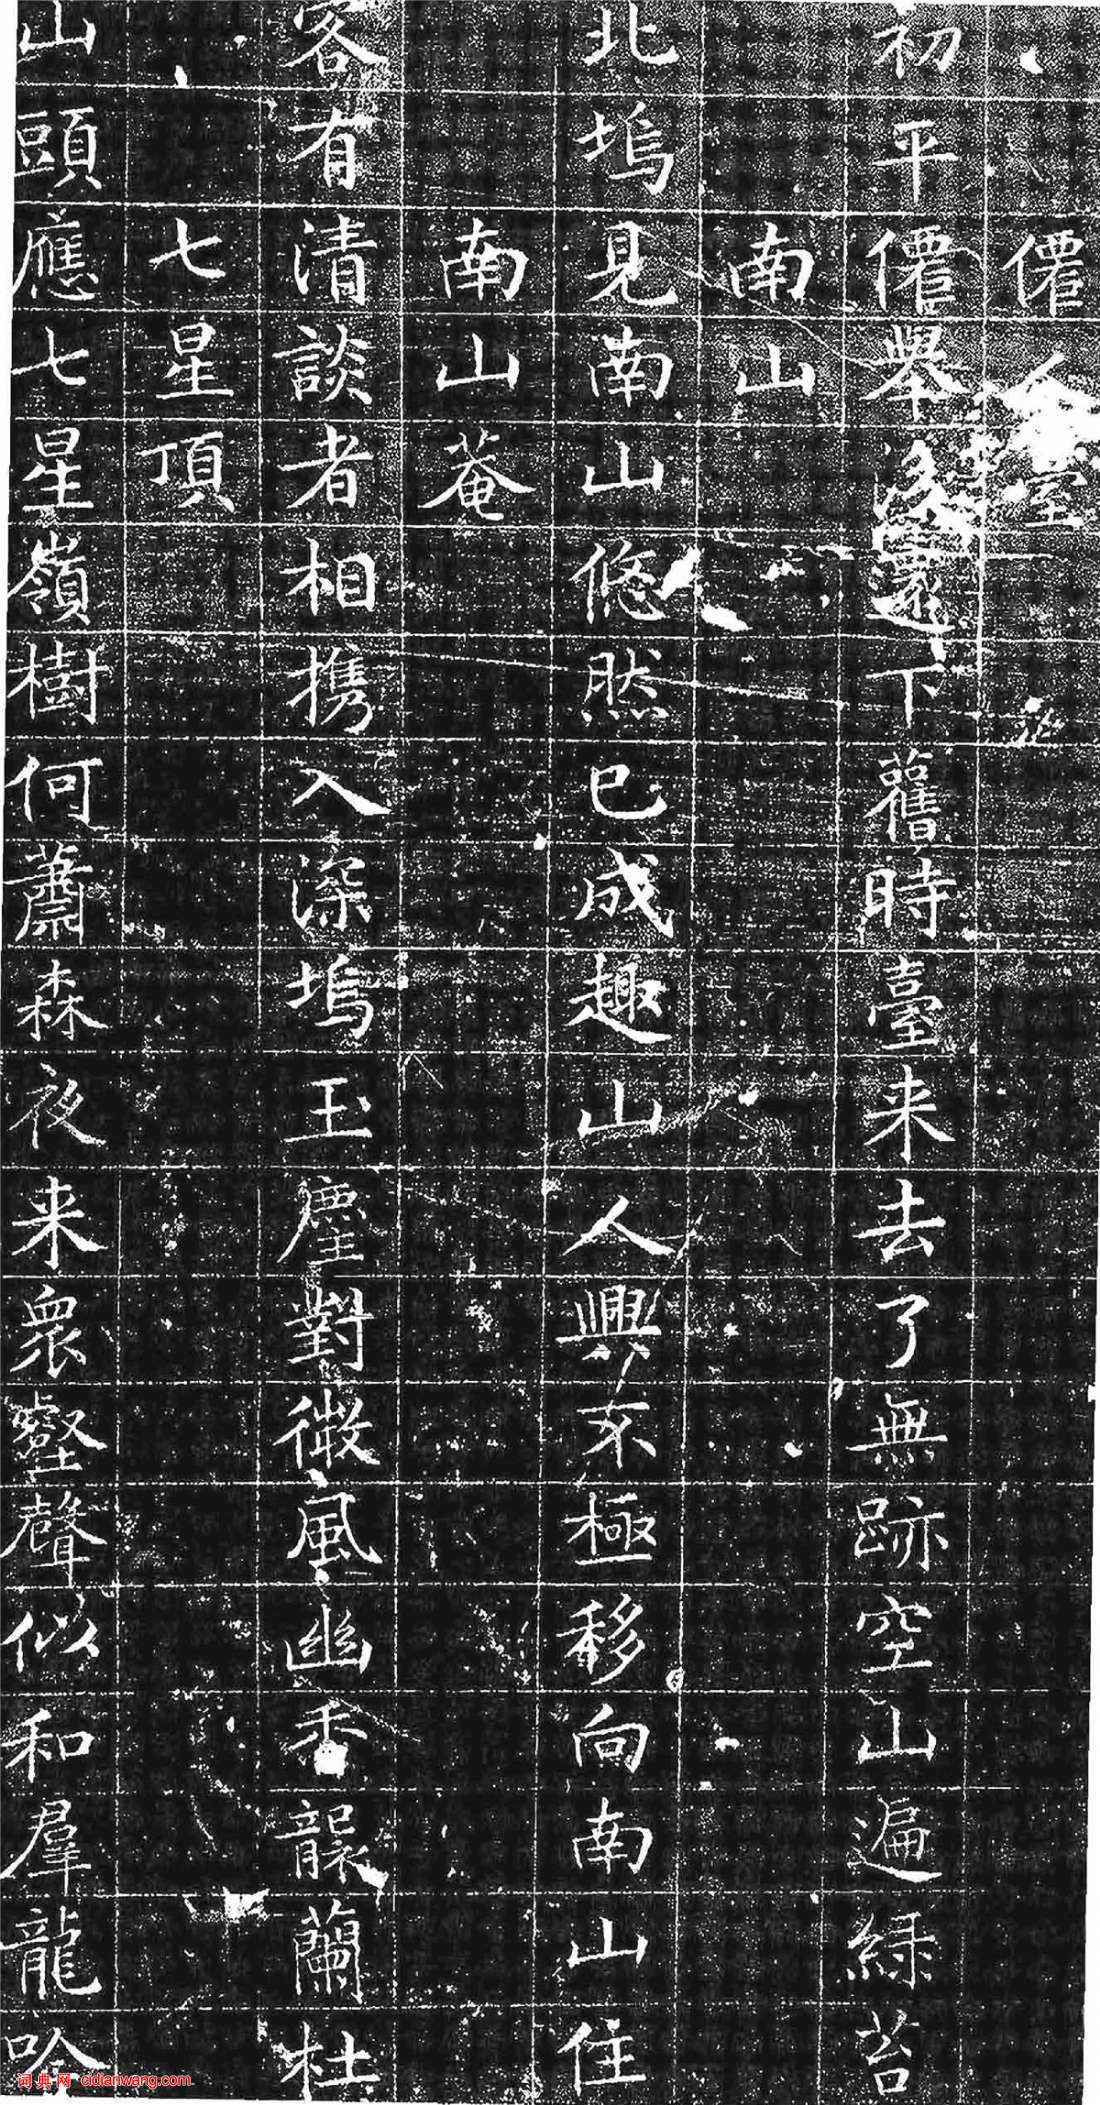 僊
初平僊舉後還下舊時臺来去了無跡空山遍緑苔
南山
北塢見南山悠然已成趣山人興不極移向南山住
南山菴
客有清談者相携入深塢玉麈對微風幽香襲蘭杜
七星頂
山頭應七星嶺樹何蕭森夜来衆壑聲似和羣龍吟
词典网 cidianwang.com